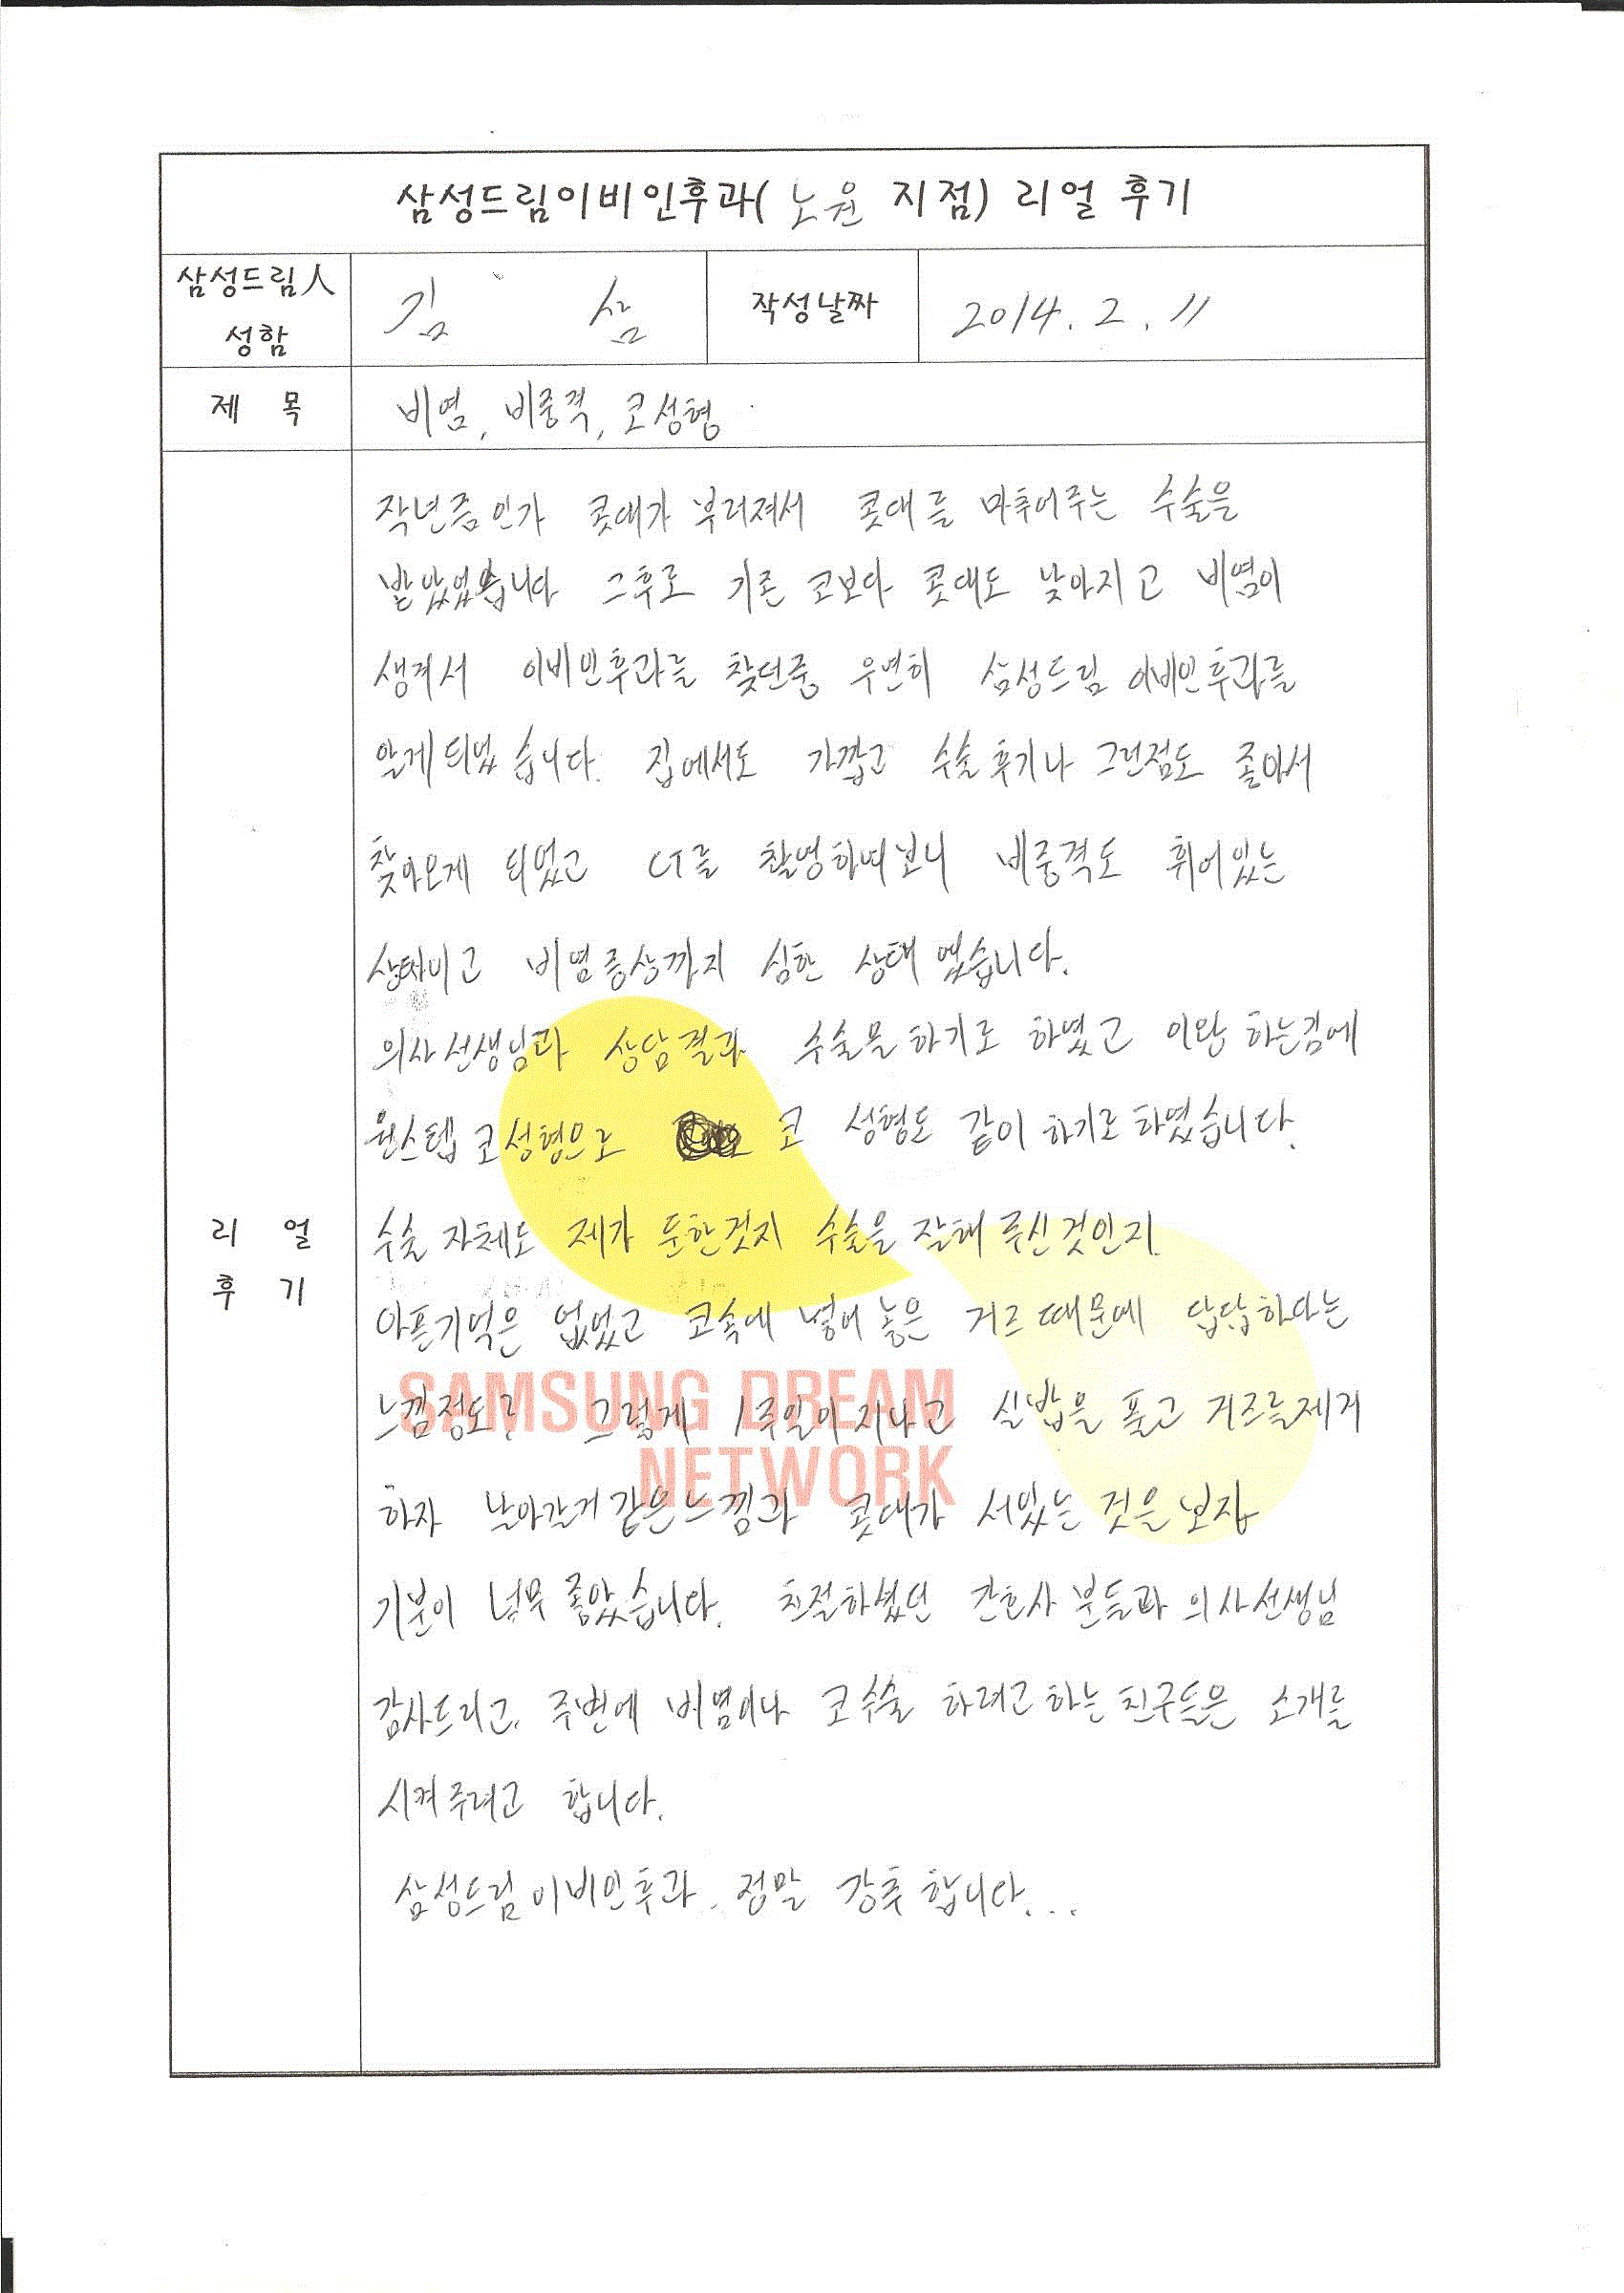 삼성드림이비인후과( 노원 지점) 리얼 후기
삼성드림人 성함
김 삼
작성날짜
2014. 2. 11
제 목
비염, 비중격, 코성형
리 얼 후 기
작년쯤인가 콧대가 부러져서 콧대를 마추어주는 수술을
받았었습니다 그후로 기존 코보다 콧대도 낮아지고 비염이
생겨서 이비인후과를 찾던중 우연히 삼성드림 이비인후과를
알게되었습니다. 집에서도 가깝고 수술후기나 그런점도 좋아서
찾아오게 되었고 CT를 촬영하여보니 비중격도 휘어있는
상태이고 비염증상까지 심한 상태였습니다.
의사선생님과 상담결과 수술을 하기로 하였고 이왕 하는김에
원스텝 코성형으로 코 성형도 같이 하기로 하였습니다.
수술 자체도 제가 둔한것지 수술을 잘해 주신것인지
아픈기억은 없었고 코속에 넣어 놓은 거즈때문에 답답하다는
느낌정도? 그렇게 1주일이 지나고 실밥을 풀고 거즈를제거
하자 날아갈거같은느낌과 콧대가 서있는 것을보자
기분이 너무 좋았습니다. 친절하셨던 간호사 분들과 의사선생님
감사드리고. 주변에 비염이나 코수술 하려고하는친구들은 소개를
시켜주려고 합니다.
삼성드림이비인후과. 정말 강추합니다...
SAMSUNG DREAM
NETWORK